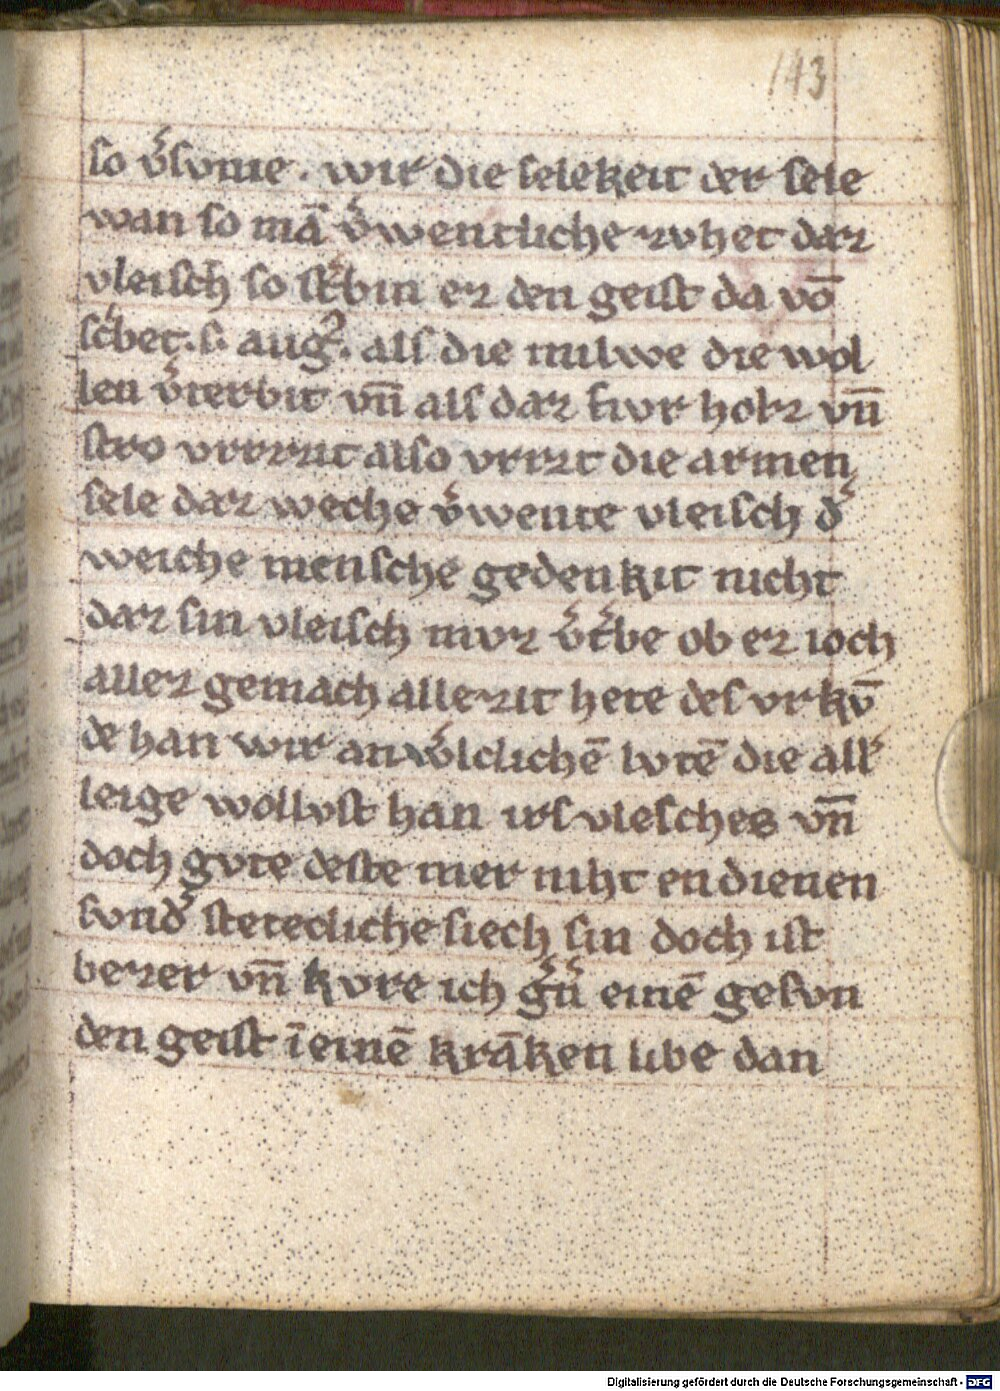 143
so v̾svme . wir die selekeit der sele
wan so mā v̾wentliche rvhet daz
vleisch so st̾bin er den geist da vō
sc̾bet . s . aug̾ . als die milwe die wol
len v̾terbit vn̄ als daz fwr holz vn̄
stro vrrzit also vrizt die armen
sele daz weche v̾wente vleisch d̾
weiche mensche gedenkit nicht
daz sin vleisch mvz v̾t̾be ob ez ioch
allez gemach allezit hete des vrkv̄
de han wir anwͦlclichē lvtē die all̾
leige wollvst han irs vlesches vn̄
doch gvte deste mer niht en dienen
svnd̾ stetecliche siech sin doch ist
bezer vn̄ kvre ich g̾n̾ einē gesvn
den geist ī einē krākē libe dan
Digitalisierung gefördert durch die Deutsche Forschungsgemeinschaft - DFG